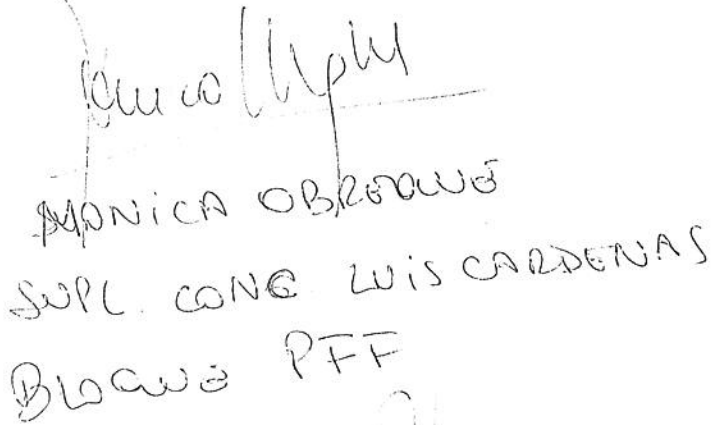 MONICA OBREQUE
SUPL. CONC. LUIS CARDENAS
BLOQUE PFF